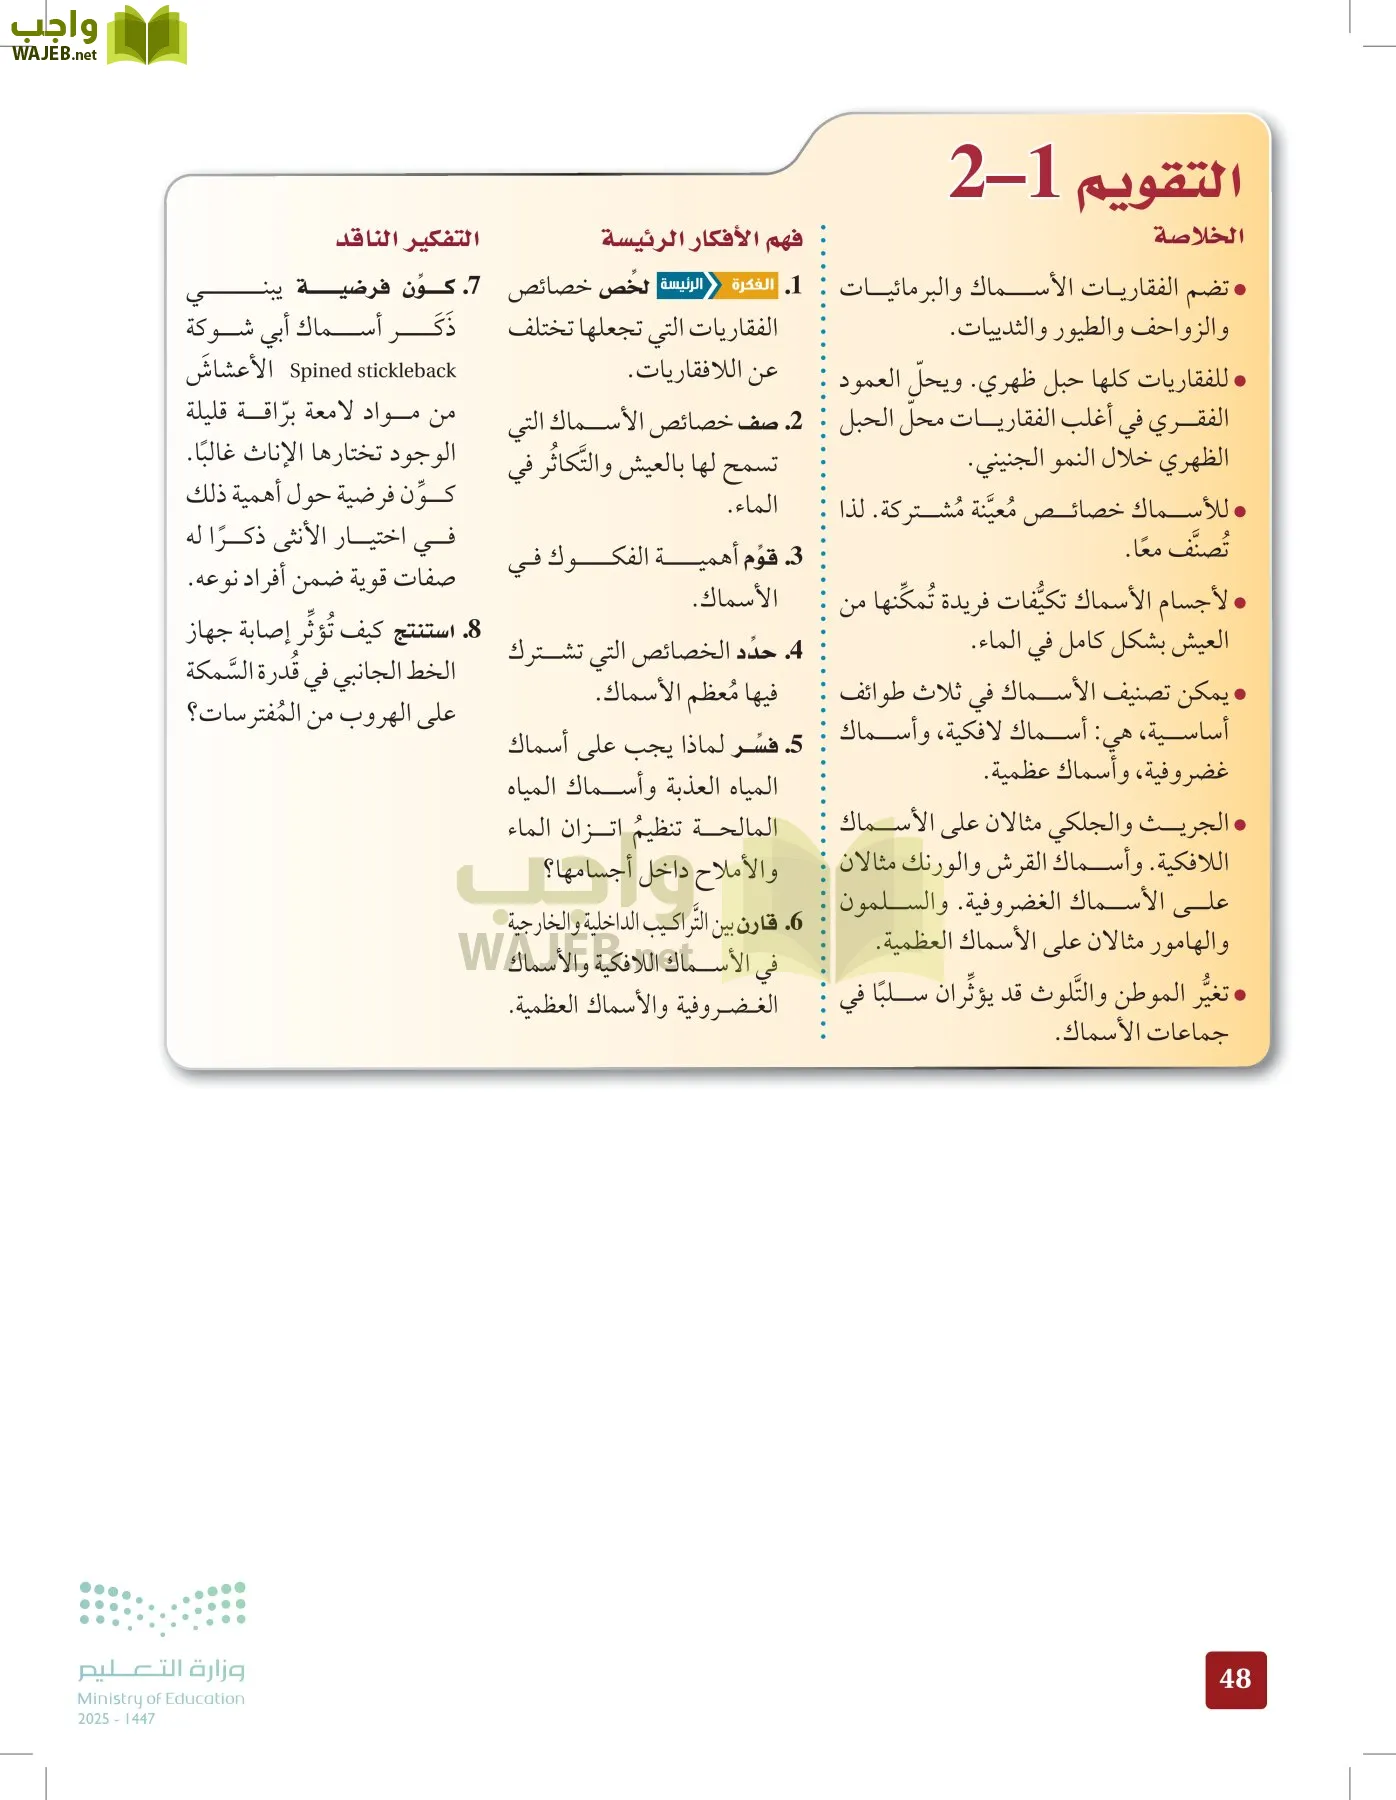 واجب
WAJEB.net
التقويم 1–2
الخلاصة
• تضم الفقاريات الأسماك والبرمائيات
والزواحف والطيور والثدييات.
• للفقاريات كلها حبل ظهري. ويحلّ العمود
الفقري في أغلب الفقاريات محلّ الحبل
الظهري خلال النمو الجنيني.
• للأسماك خصائص مُعيَّنة مُشتركة. لذا
تُصنَّف معًا.
• لأجسام الأسماك تكيُّفات فريدة تُمكِّنها من
العيش بشكل كامل في الماء.
• يمكن تصنيف الأسماك في ثلاث طوائف
أساسية، هي: أسماك لافكية، وأسماك
غضروفية، وأسماك عظمية.
• الجريث والجلكي مثالان على الأسماك
اللافكية. وأسماك القرش والورنك مثالان
على الأسماك الغضروفية. والسلمون
والهامور مثالان على الأسماك العظمية.
• تغيُّر الموطن والتَّلوث قد يؤثِّران سلبًا في
جماعات الأسماك.
فهم الأفكار الرئيسة
1. الفكرة الرئيسة لخّص خصائص
الفقاريات التي تجعلها تختلف
عن اللافقاريات.
2. صف خصائص الأسماك التي
تسمح لها بالعيش والتَّكاثُر في
الماء.
3. قوِّم أهمية الفكوك في
الأسماك.
4. حدِّد الخصائص التي تشترك
فيها مُعظم الأسماك.
5. فسِّر لماذا يجب على أسماك
المياه العذبة وأسماك المياه
المالحة تنظيمُ اتزان الماء
والأملاح داخل أجسامها؟
6. قارن بين التَّراكيب الداخلية والخارجية
في الأسماك اللافكية والأسماك
الغضروفية والأسماك العظمية.
التفكير الناقد
7. كوِّن فرضية يبني
ذَكَر أسماك أبي شوكة
Spined stickleback الأعشاشَ
من مواد لامعة برّاقة قليلة
الوجود تختارها الإناث غالبًا.
كوِّن فرضية حول أهمية ذلك
في اختيار الأنثى ذكرًا له
صفات قوية ضمن أفراد نوعه.
8. استنتج كيف تُؤثِّر إصابة جهاز
الخط الجانبي في قُدرة السَّمكة
على الهروب من المُفترسات؟
واجب
WAJEB.net
وزارة التعليم
Ministry of Education
2025 - 1447
48